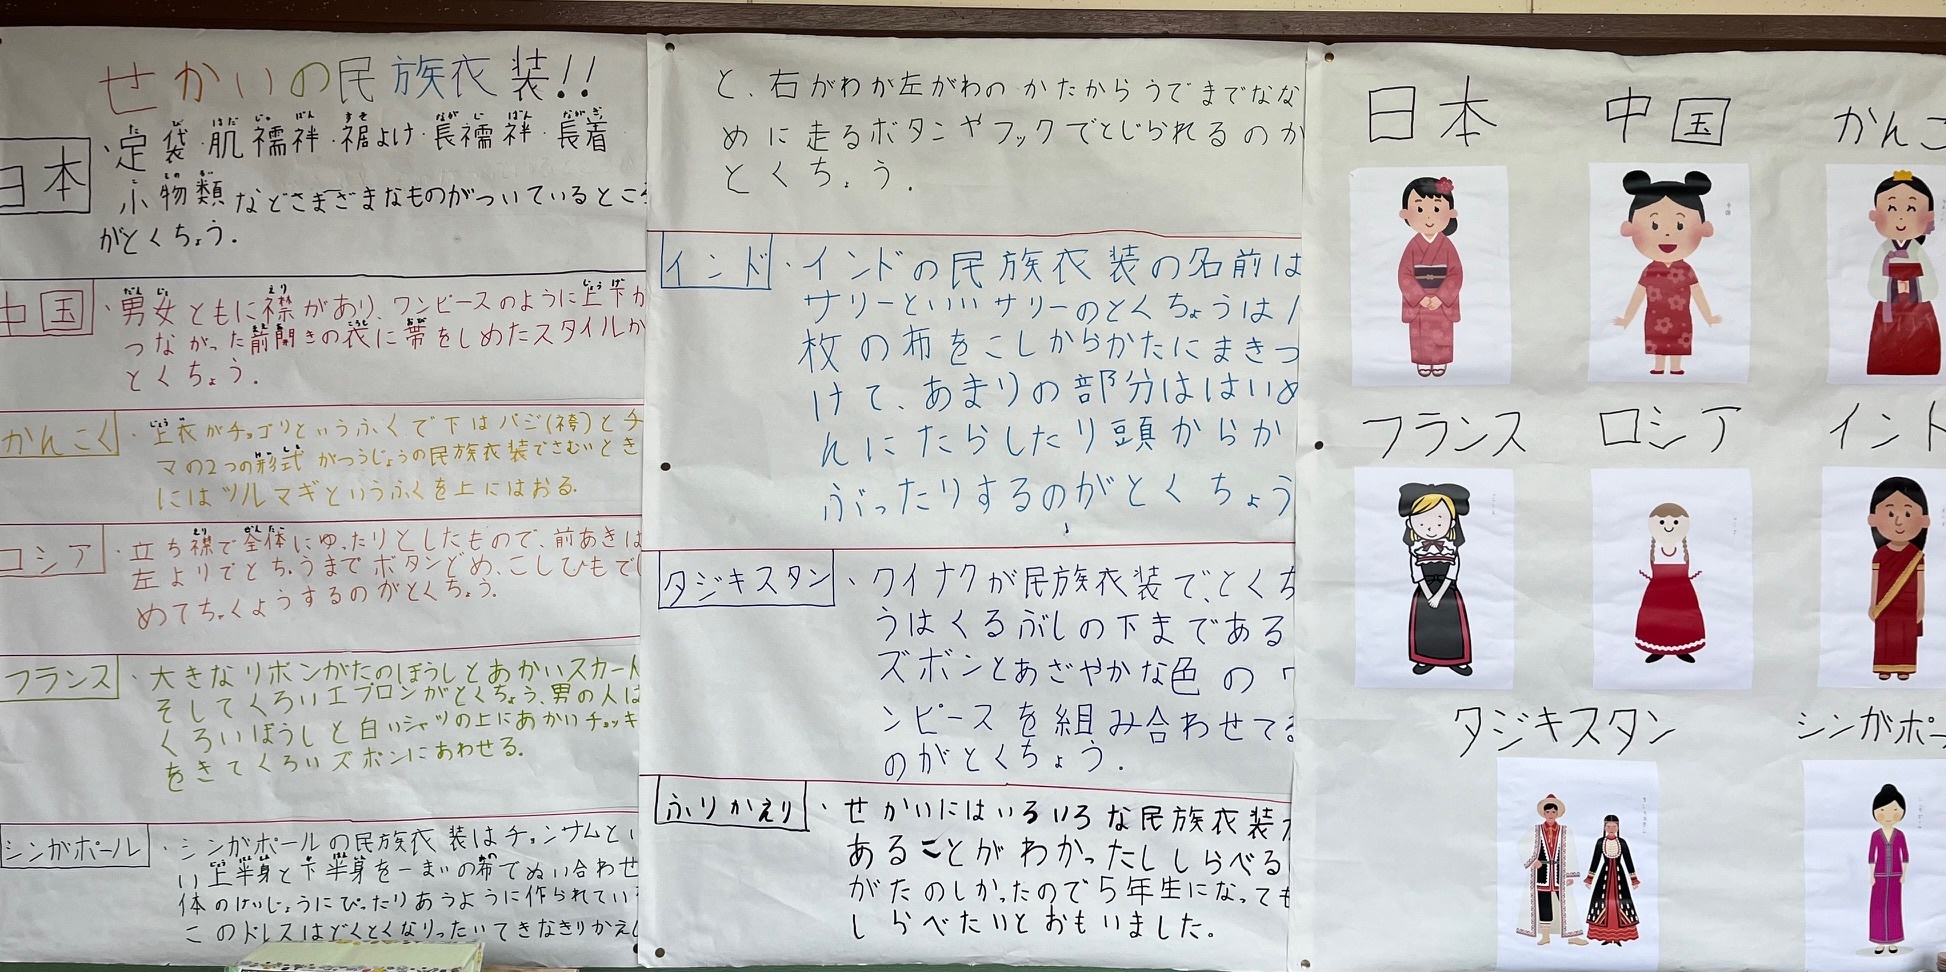 せかいの民族衣装!!
日本
・足袋・肌襦袢・裾よけ・長襦袢・長着
小物類などさまざまなものがついているところ
がとくちょう.
中国
・男女ともに襟があり、ワンピースのように上下が
つながった前開きの衣に帯をしめたスタイルが
とくちょう.
かんこく
・上衣がチョゴリというふくで下はパジ(袴)とチ
マの2つの形式がつうじょうの民族衣装でさむいとき
にはツルマギというふくを上にはおる.
ロシア
・立ち襟で全体にゆったりとしたもので、前あきは
左よりでとちゅうまでボタンどめ、こしひもでし
めてちゃくようするのがとくちょう.
フランス
・大きなリボンがたのぼうしとあかいスカート
そしてくろいエプロンがとくちょう、男の人は
くろいぼうしと白いシャツの上にあかいチョッキ
をきてくろいズボンにあわせる.
シンガポール
・シンガポールの民族衣装はチョンサムとい
い上半身と下半身を一まいの布でぬい合わせ
体のけいじょうにぴったりあうように作られてい
このドレスはどくとくなりったいてきなきりかえし
と、右がわか左がわのかたからうでまでなな
めに走るボタンやフックでとじられるのが
とくちょう.
インド
・インドの民族衣装の名前は
サリーといいサリーのとくちょうは1
枚の布をこしからかたにまきつ
けて、あまりの部分ははいめ
んにたらしたり頭からか
ぶったりするのがとくちょう
タジキスタン
・クイナクが民族衣装で、とくち
うはくるぶしの下まである
ズボンとあざやかな色のワ
ンピースを組み合わせてる
のがとくちょう.
ふりかえり
・せかいにはいろいろな民族衣装が
あることがわかったししらべる
がたのしかったので5年生になっても
しらべたいとおもいました。
日本
中国
かんこ
フランス
ロシア
インド
タジキスタン
シンガポー